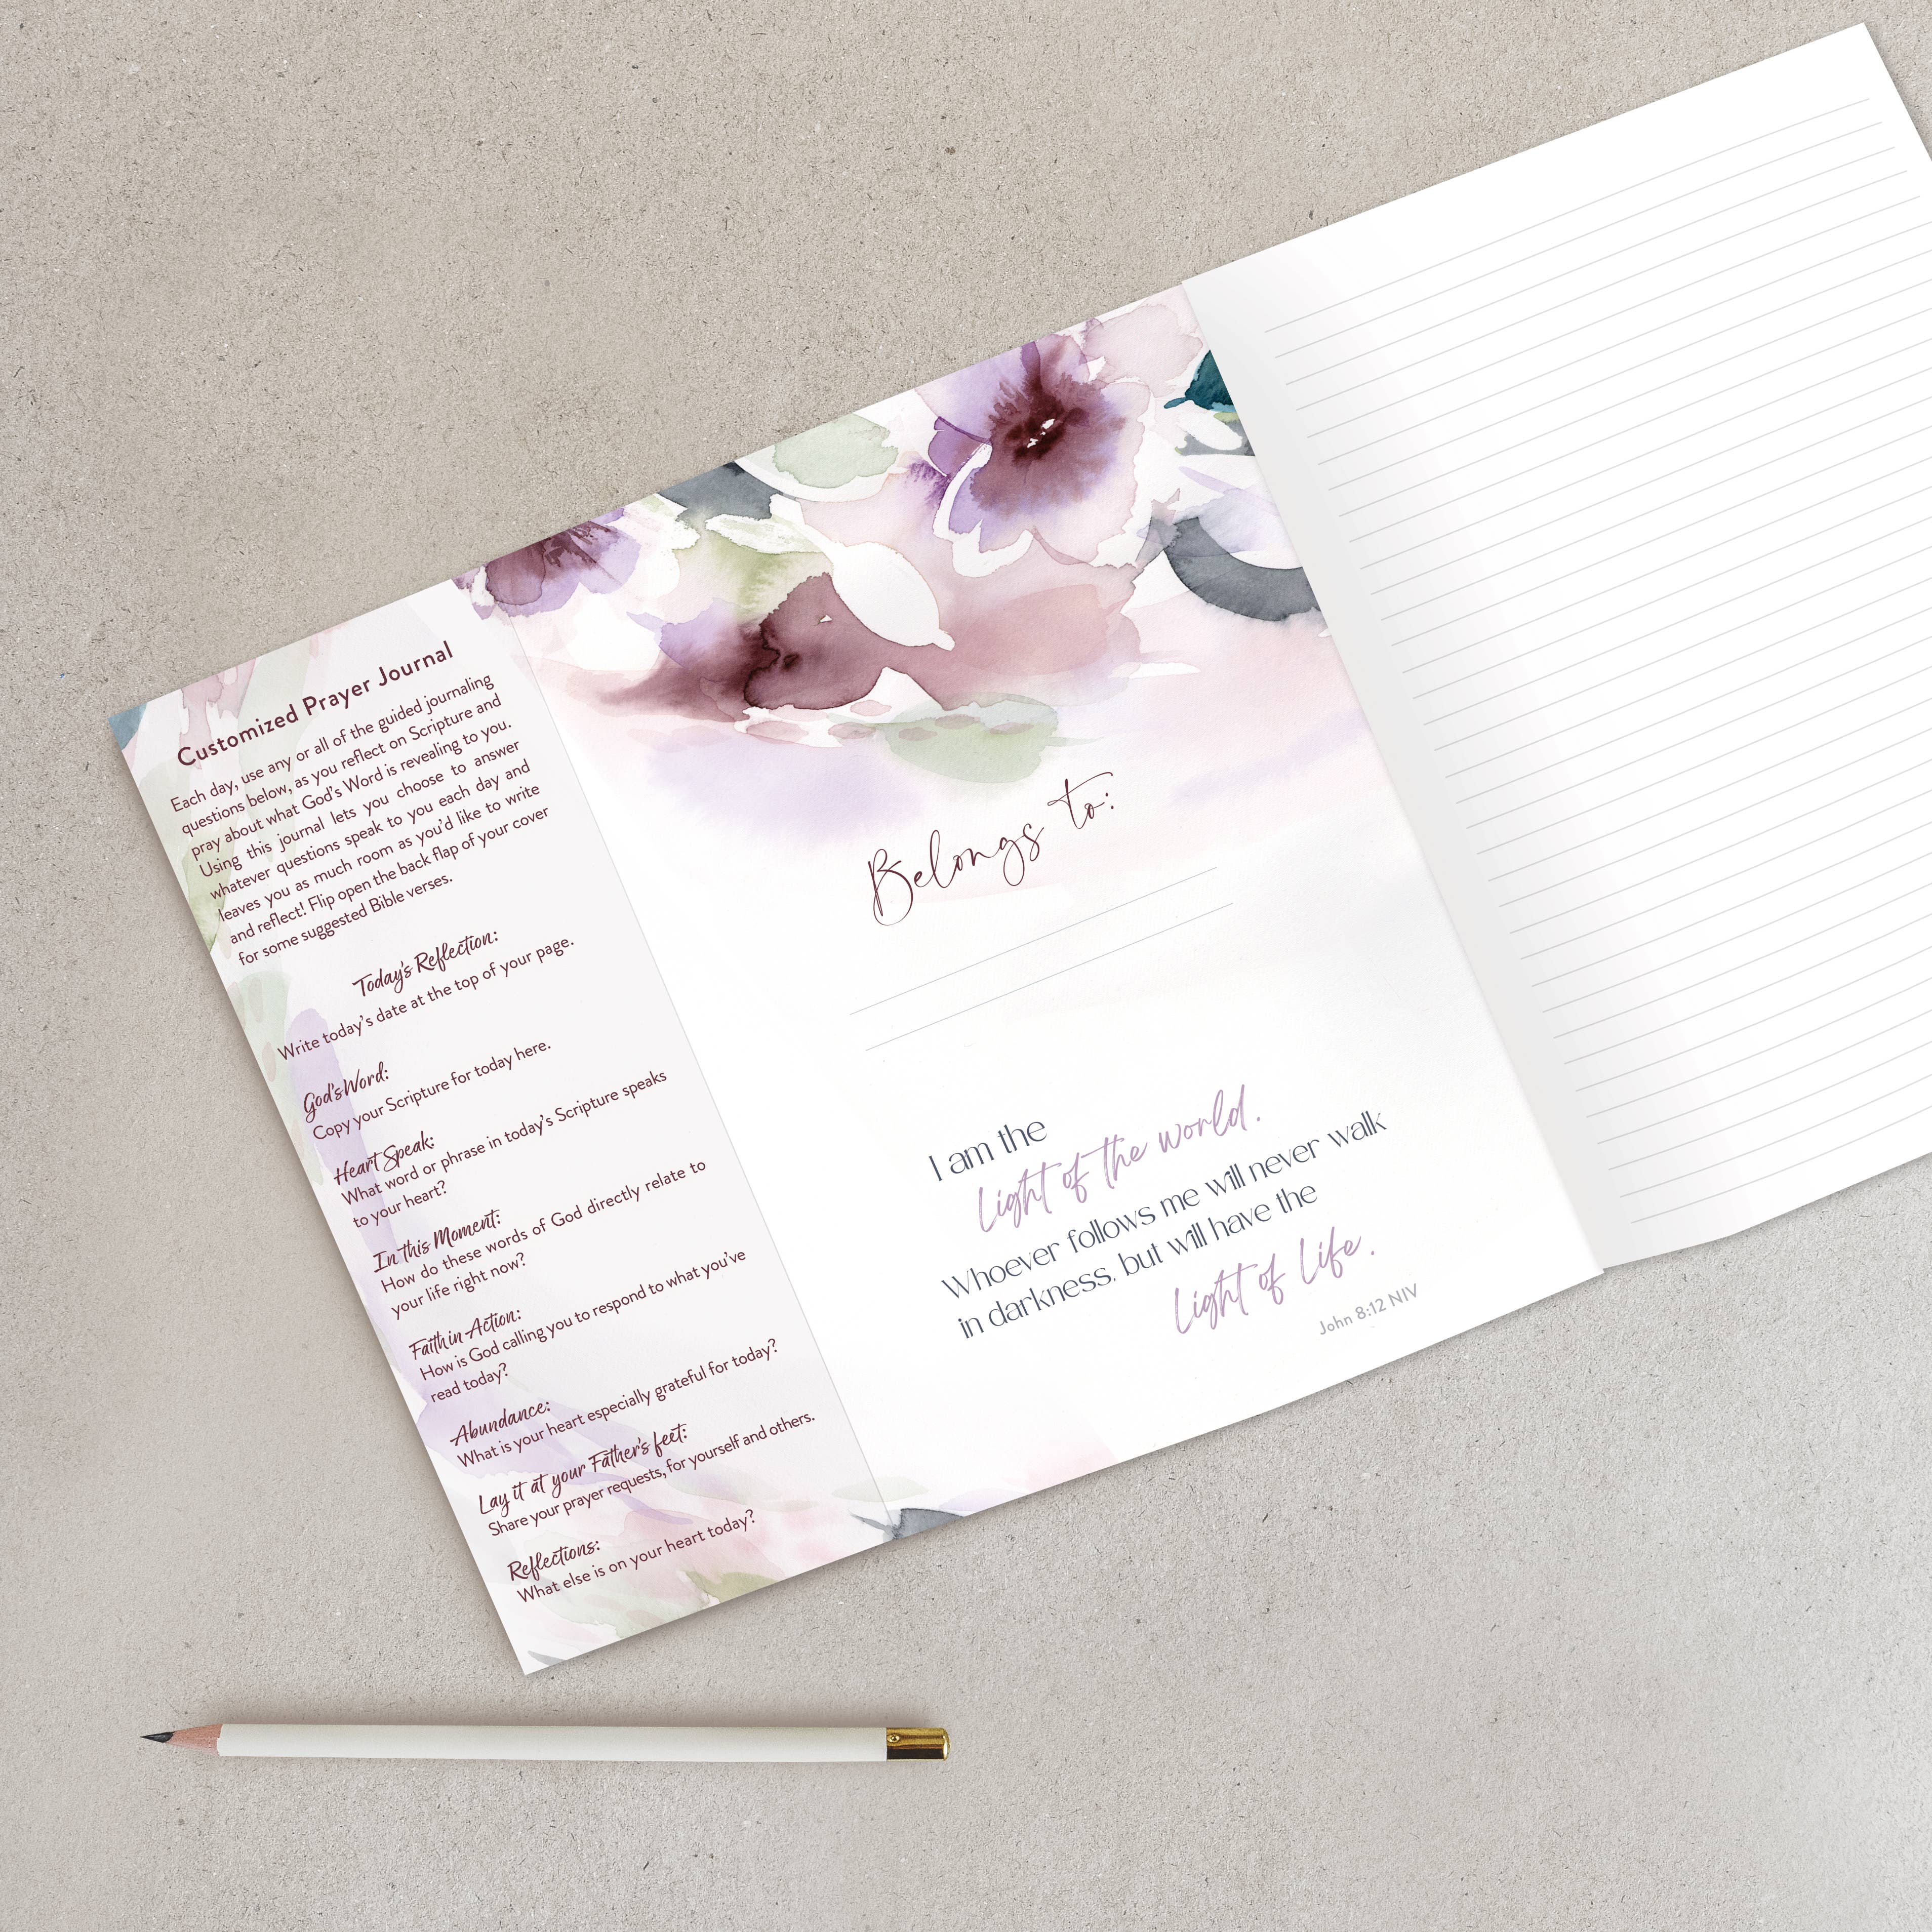 Customized Prayer Journal
Each day, use any or all of the guided journaling
questions below, as you reflect on Scripture and
pray about what God's Word is revealing to you.
Using this journal lets you choose to answer
whatever questions speak to you each day and
leaves you as much room as you'd like to write
and reflect! Flip open the back flap of your cover
for some suggested Bible verses.
Today's Reflection:
Write today's date at the top of your page.
God's Word:
Copy your Scripture for today here.
Heart Speak:
What word or phrase in today's Scripture speaks
to your heart?
In this Moment:
How do these words of God directly relate to
your life right now?
Faith in Action:
How is God calling you to respond to what you've
read today?
Abundance:
What is your heart especially grateful for today?
Lay it at your Father's feet:
Share your prayer requests, for yourself and others.
Reflections:
What else is on your heart today?
Belongs to:
I am the
Light of the world.
Whoever follows me will never walk
in darkness, but will have the
Light of Life.
John 8:12 NIV